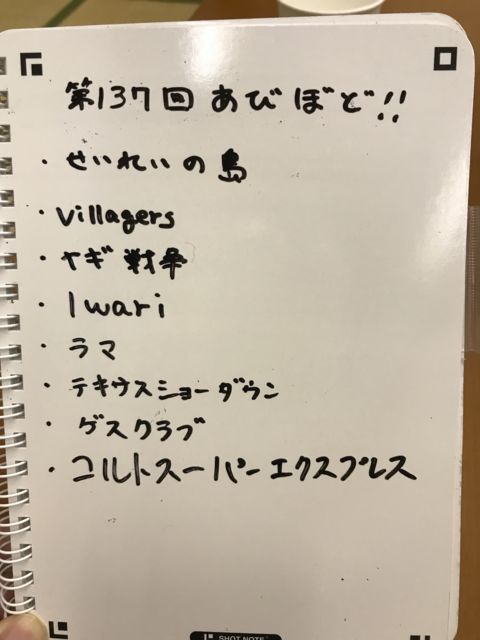 第137回 あびぼど!!
・せいれいの島
・villagers
・ヤギ戦争
・Iwari
・ラマ
・テキサスショーダウン
・ゲスクラブ
・コルトスーパーエクスプレス
SHOT NOTE